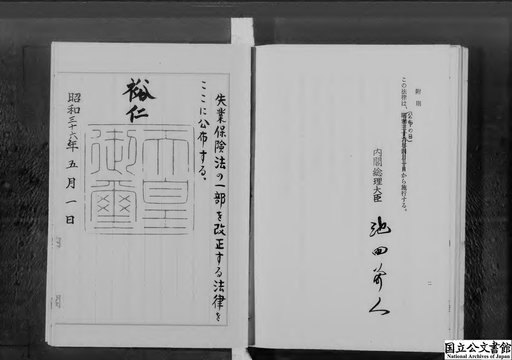 失業保険法の一部を改正する法律を
ここに公布する。
裕仁
天皇
御璽
昭和三十六年五月一日
附則
この法律は、
(公布の日)
から施行する。
内閣総理大臣
池田勇人
二
国立公文書館
National Archives of Japan